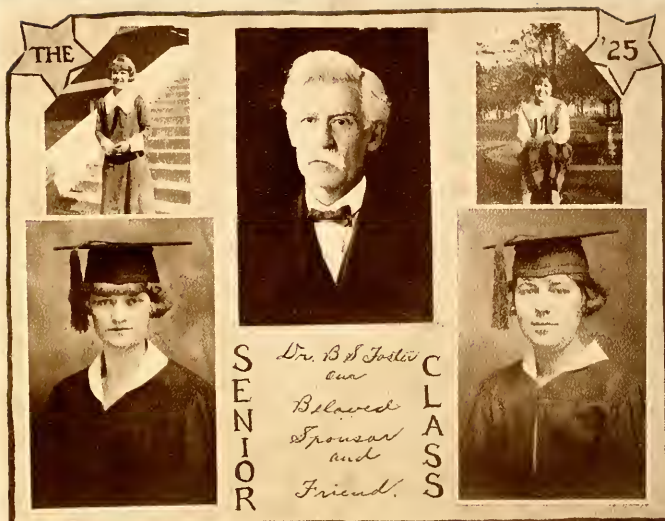 THE
'25
SENIOR
Dr. B S Foster
our
Beloved
Sponsor
and
Friend.
CLASS